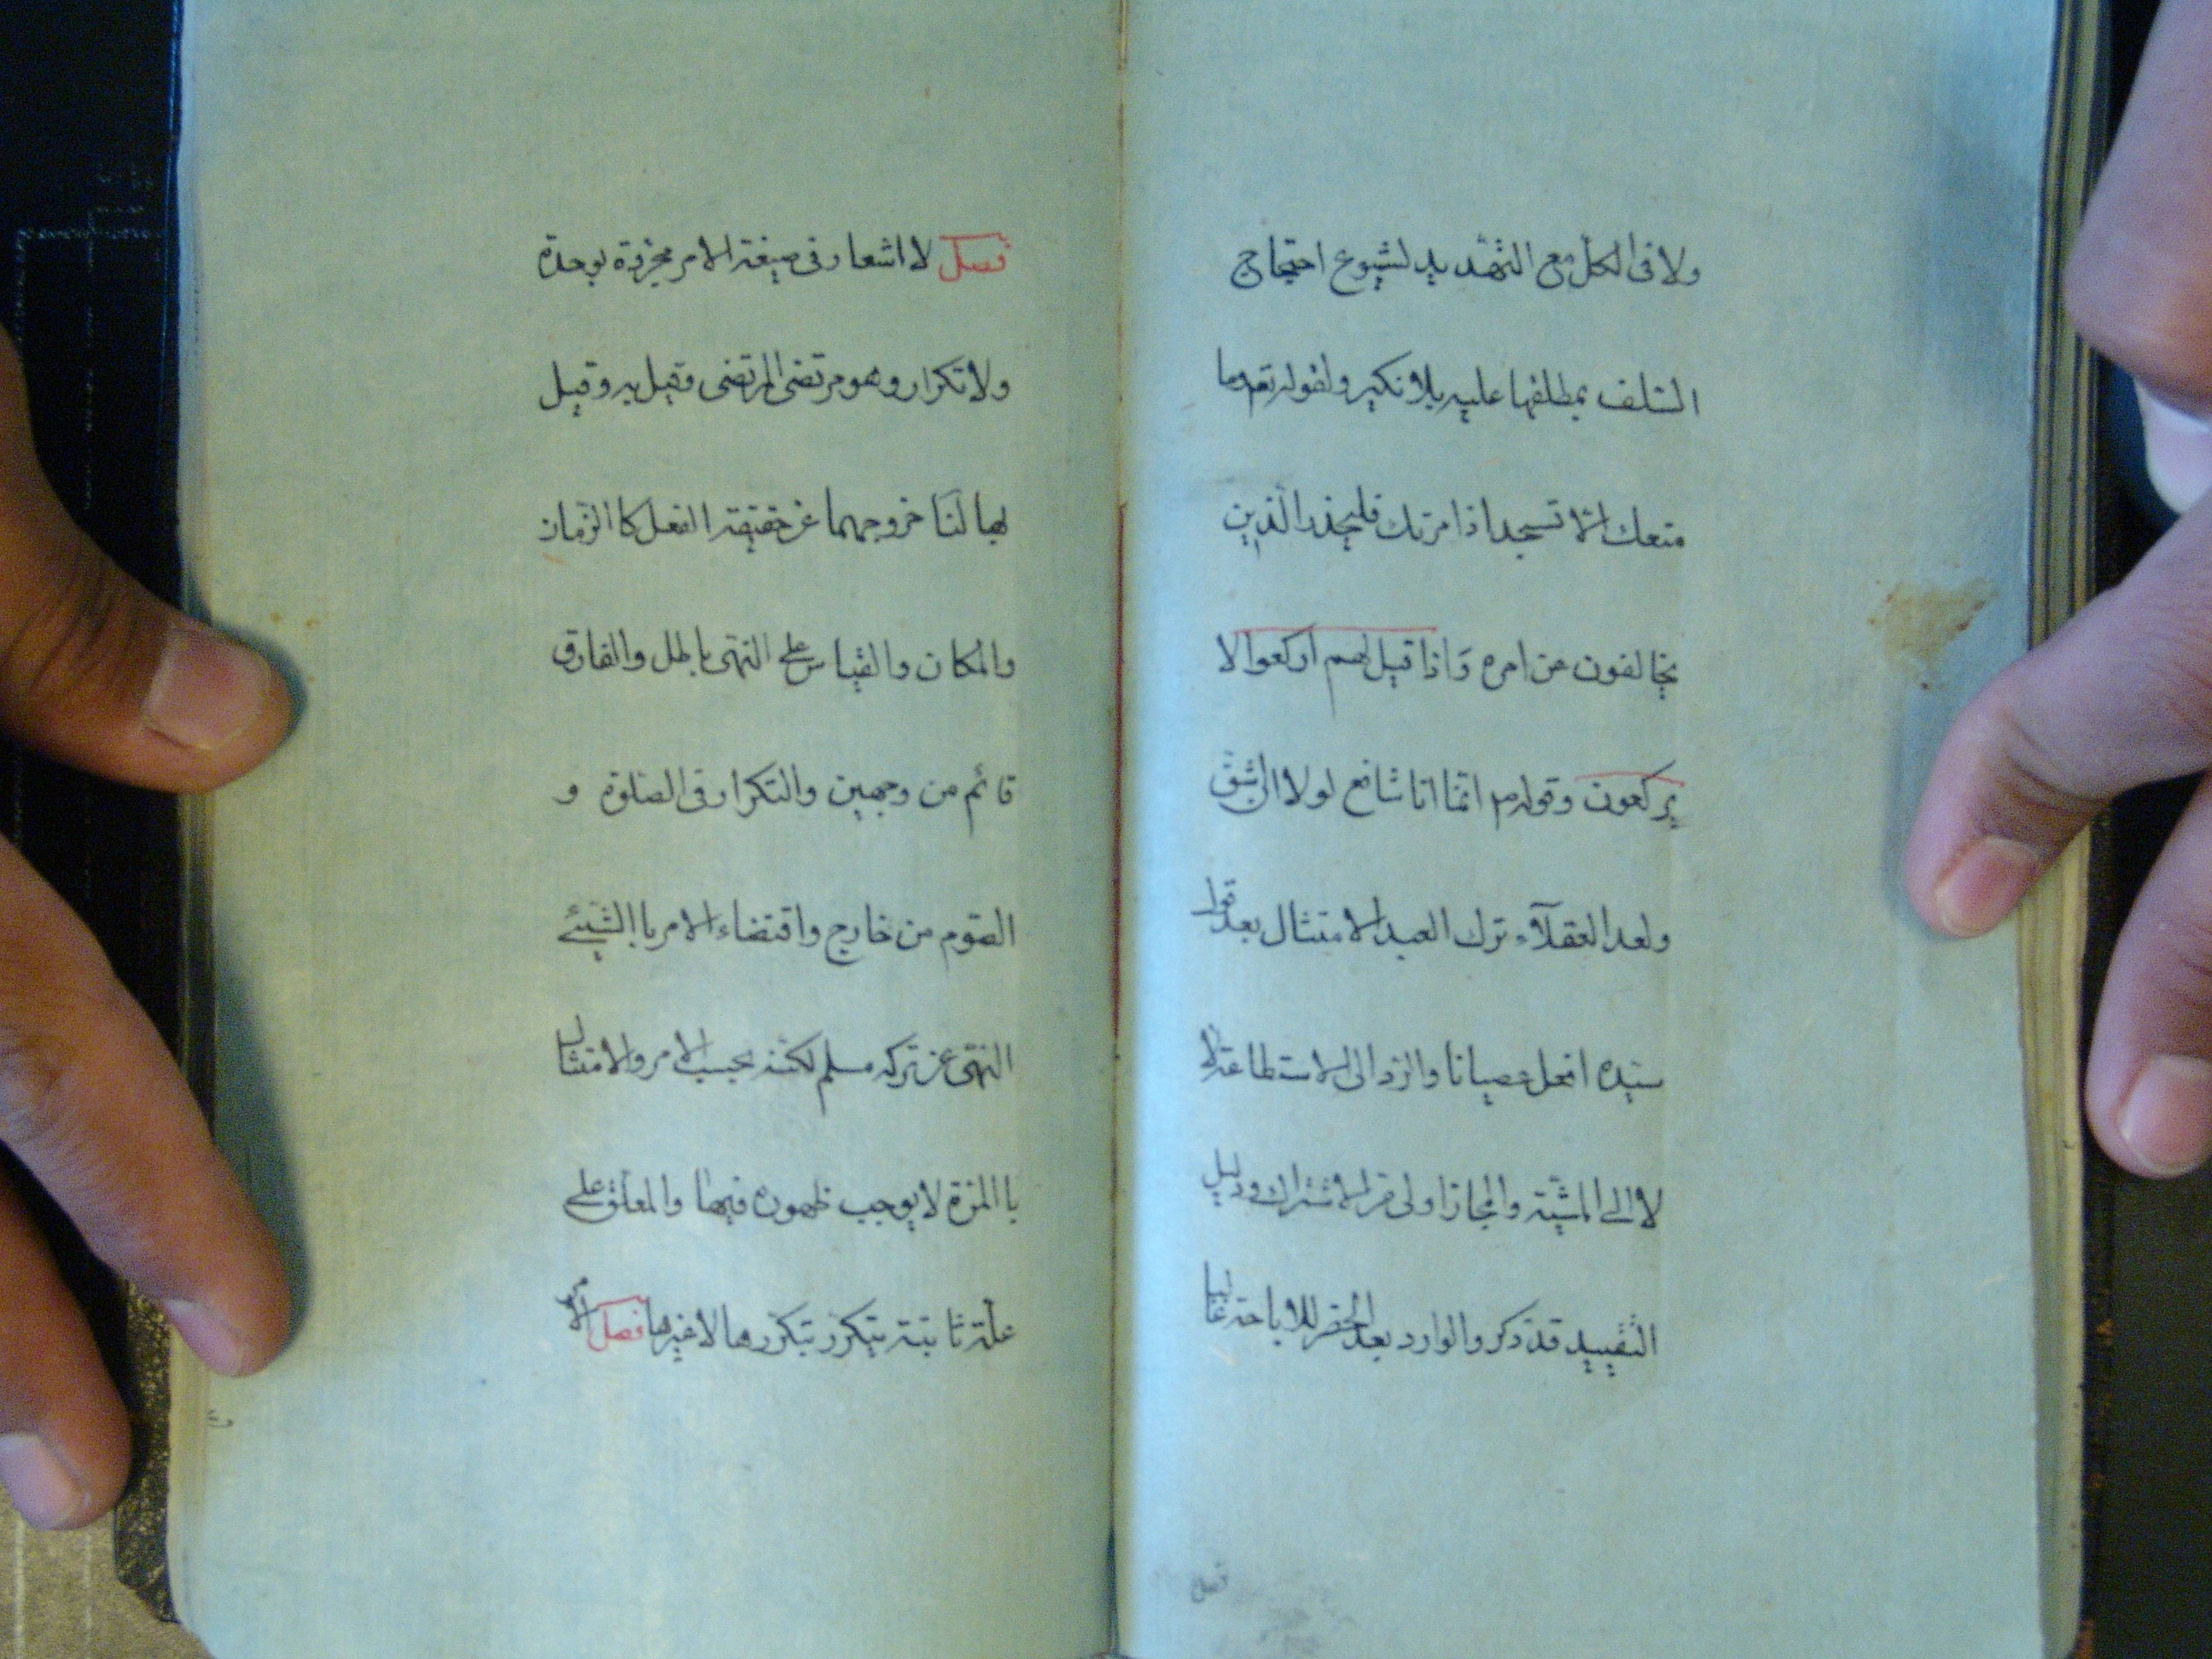 ولا فى الكل مع التهديد لشيوع احتجاج
السلف بمطلقها عليه بلا نكير ولقوله تعه ما
منعك الا تسجد اذ امرتك فليحذر الذين
يخالفون عن امره وَاذا قيل لهم اركعوا لا
يركعون وقوله م انما انا شافع لولا ان اشق
ولعد العقلآء ترك العبد الامتثال بعد قول
سيده افعل عصيانا والرد الى الاستطاعة
لا الى المشية والمجاز اولى من الاشتراك ودليل
التقييد قد ذكر والوارد بعد الحضر للاباحة غالبا
فصل
فصل لا اشعار فى صيغة الامر مجردة بوحدة
ولا تكرار وهو مرتضى المرتضى وقيل به وقيل
بها لنا خروجهما عن حقيقة الفعل كا الزمان
والمكان والقياس على النهى باطل والفارق
قائم من وجهين والتكرار فى الصلوة و
الصوم من خارج واقتضاء الامر با الشيئ
النهى عن تركه مسلم لكنه بحسب الامر والامتثال
با المرة لا يوجب ظهوره فيها والمعلق على
علة ثابتة يتكرر بتكررها لا غيرها فصل الامر